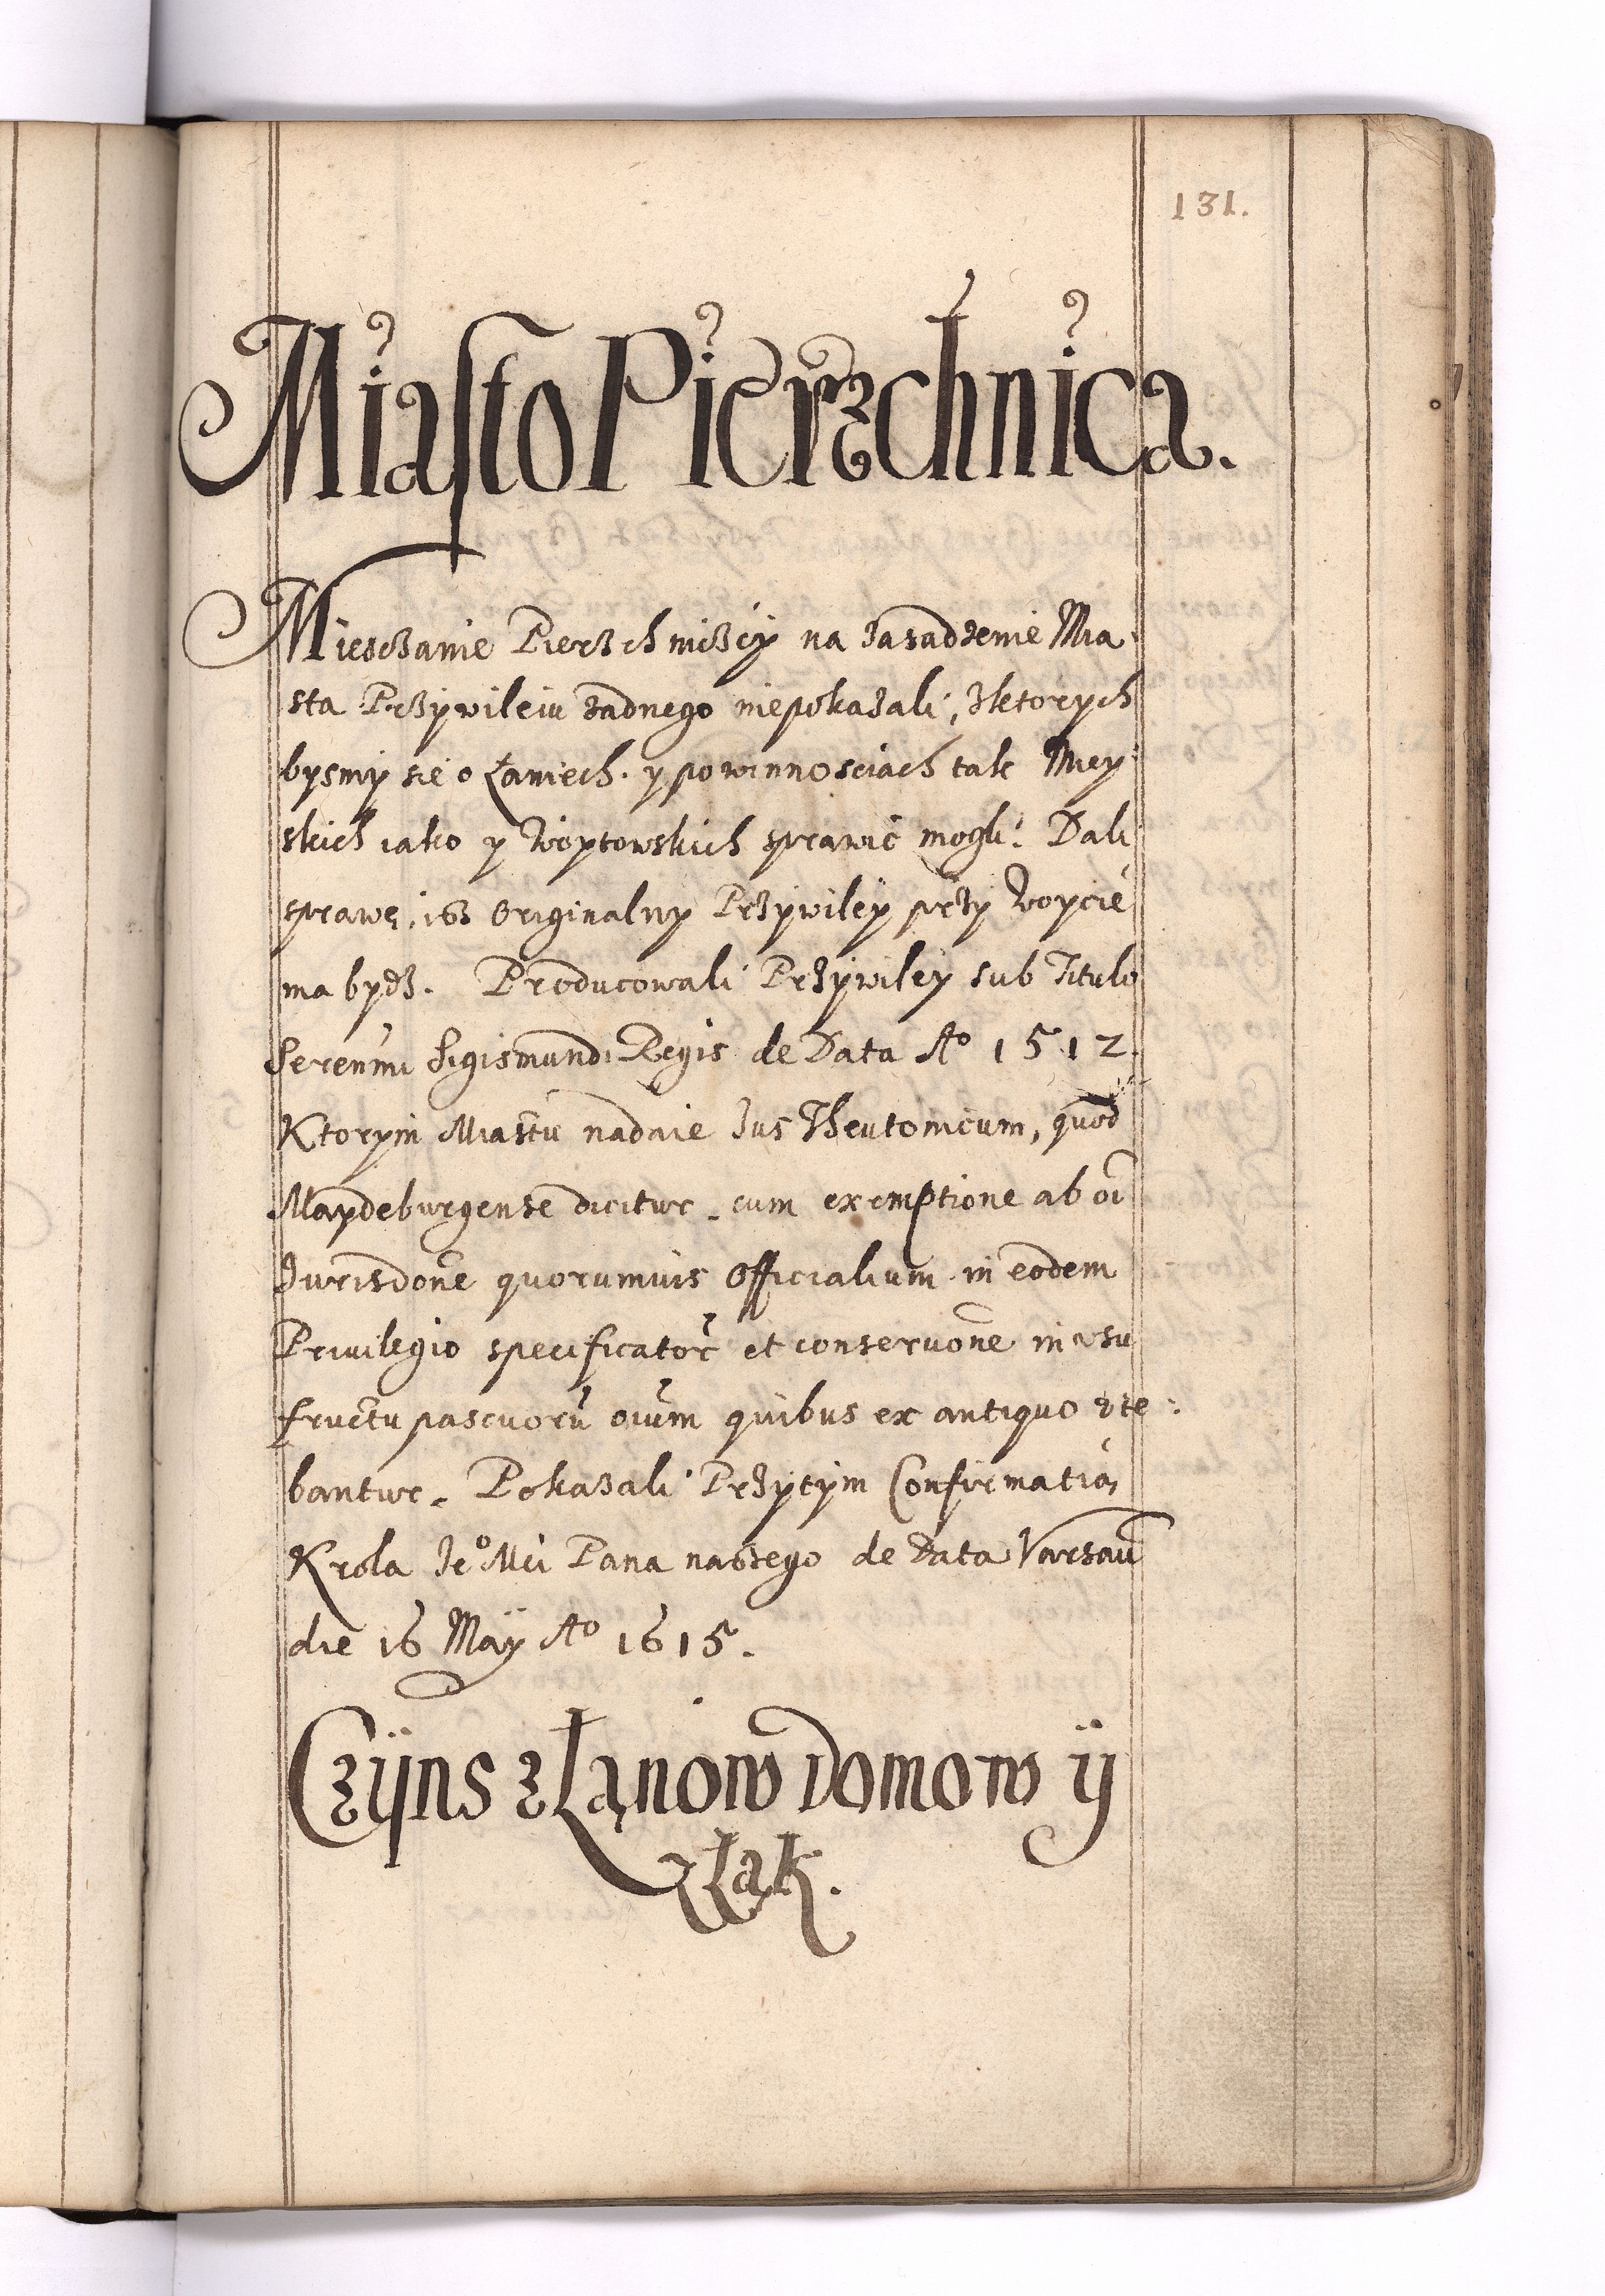 131.
Miasto Pierzchnica.
Miesczanie Pierzchniczcy na zasadzenie Mia
sta Przywileiu zadnego niepokazali, zktorych
bysmy sie o Łaniech y powinnosciach tak Mey
skich iako y Woytowskich sprawic mogli. Dali
sprawę, isz Originalny Przywiley przy Woycie
ma bydz. Producowali Przywiley sub Titulo
Serenmi Sigismundi Regis de Data Ao 1512.
Ktorym Miastu nadaie Jus Theutonicum, quod
Maydeburgense dicitur. cum exemptione ab oi
Jurisdone quorumvis Officialium in eodem
Privilegio specificator et conservone in usu
fructu pascuoru oium quibus ex antiquo ute:
bantur. Pokazali Przytym Confirmatią
Krola Jeo Mci Pana naszego de Data Varsau
die 16 Maÿ Ao 1615.
Czÿns z Łanow Domow ÿ
z Łąk.